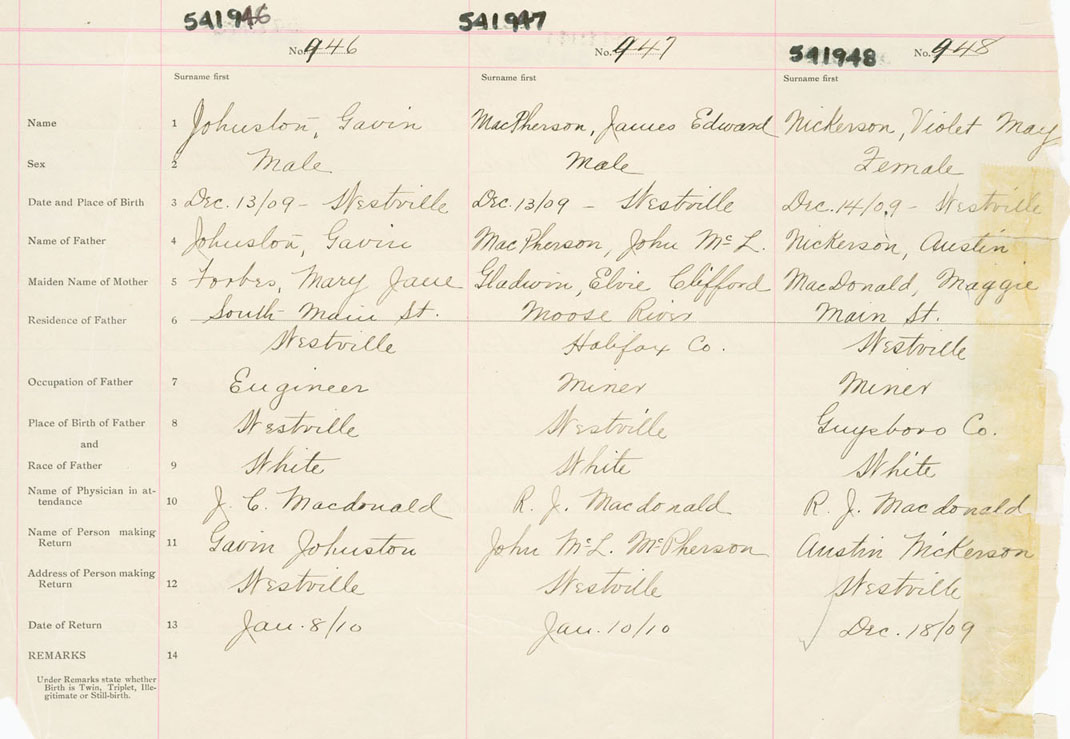 541946 541947
No. 946 No. 947 541948 No. 948
Surname first Surname first Surname first
Name 1 Johnston, Gavin MacPherson, James Edward Nickerson, Violet May
Sex 2 Male Male Female
Date and Place of Birth 3 Dec. 13/09 - Westville Dec. 13/09 - Westville Dec. 14/09 - Westville
Name of Father 4 Johnston, Gavin MacPherson, John McL. Nickerson, Austin
Maiden Name of Mother 5 Forbes, Mary Jane Gladwin, Elvie Clifford MacDonald, Maggie
Residence of Father 6 South Main St. Moose River Main St.
Westville Halifax Co. Westville
Occupation of Father 7 Engineer Miner Miner
Place of Birth of Father 8 Westville Westville Guysboro Co.
and
Race of Father 9 White White White
Name of Physician in at-
tendance 10 J. C. Macdonald R. J. Macdonald R. J. Macdonald
Name of Person making
Return 11 Gavin Johnston John McL. McPherson Austin Nickerson
Address of Person making
Return 12 Westville Westville Westville
Date of Return 13 Jan. 8/10 Jan. 10/10 Dec. 18/09
REMARKS 14
Under Remarks state whether
Birth is Twin, Triplet, Ille-
gitimate or Still-birth.